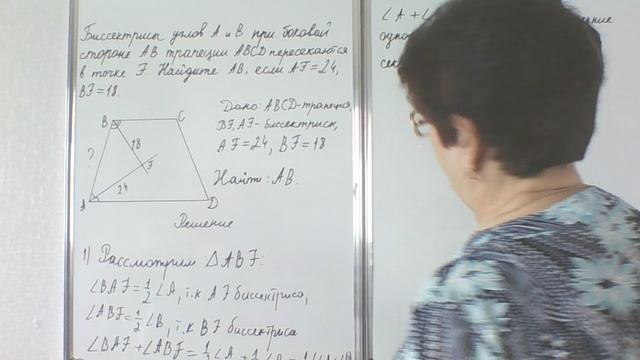 Биссектрисы углов A и B при боковой
стороне AB трапеции ABCD пересекаются
в точке F. Найдите AB, если AF=24,
BF=18.
Дано: ABCD-трапеция,
BF, AF- биссектрисы,
AF=24, BF=18
Найти: AB.
B
C
18
?
F
24
A
D
Решение
1) Рассмотрим △ABF:
∠BAF=1/2 ∠A, т.к AF биссектриса,
∠ABF=1/2 ∠B, т.к BF биссектриса
∠BAF+∠ABF=1/2∠A+1/2∠B=
∠A+∠
одно
сек